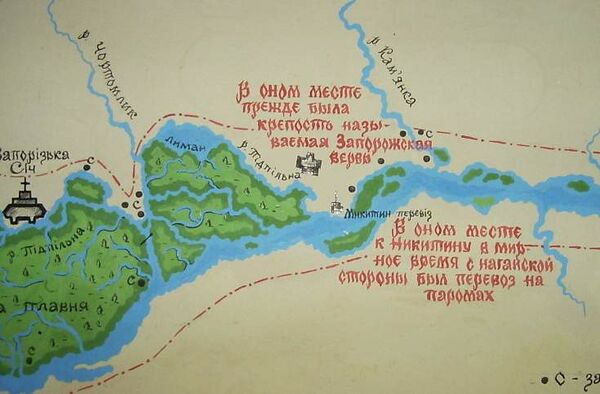 р. Чортомлик
р. Кам'янка
В оном месте
прежде была
крепость назы-
ваемая Запорожская
вервь
лиман
р. Підпільна
Запорізька
Січ
с
с
с
с
р. Підпільна
плавня
Микитин перевіз
В оном месте
к Никитину в мир-
ное время с нагайской
стороны был перевоз на
паромах
с - за